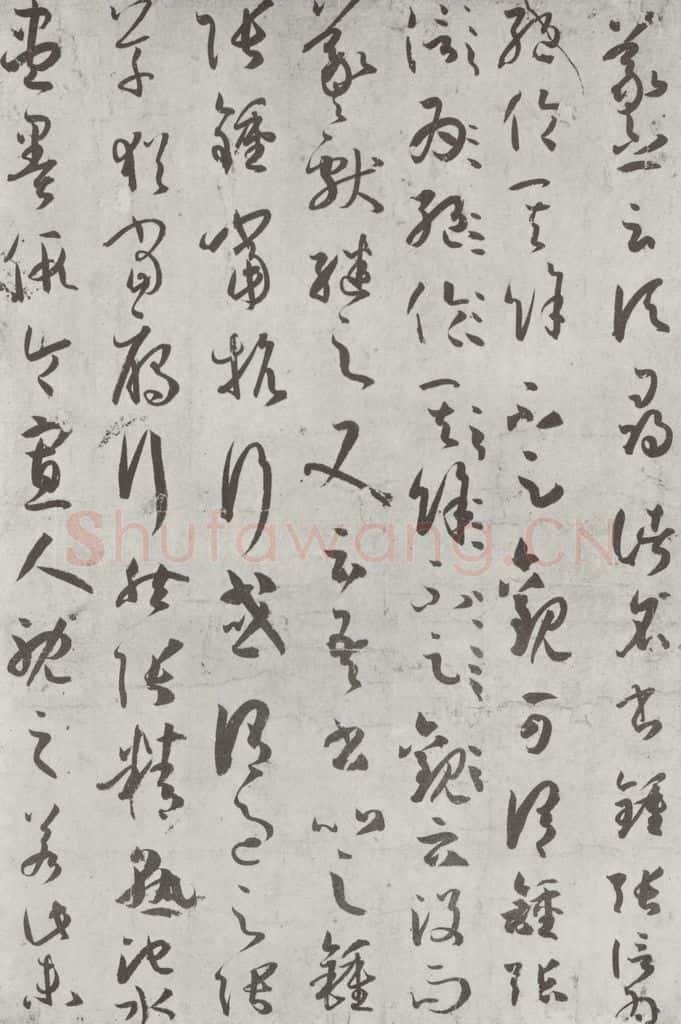 羲之云頃尋諸名書鍾張信為
絕倫其餘不足觀可謂鍾張
信為絕倫其餘不足觀云沒而
羲獻繼之又云吾書比之鍾
張鍾當抗行或謂過之張
草猶當雁行然張精熟池水
盡墨假令寡人耽之若此未
Shufawang.CN